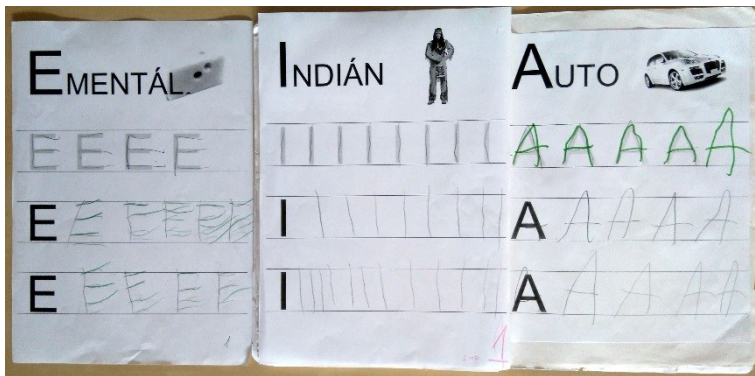 EMENTÁL
E E E E
E E E E E E
E E E E E
1
INDIÁN
I I I I I I I I
I I I I I I I I
I I I I I I I I I I I I I
1
AUTO
A A A A A
A A A A A
A A A A A